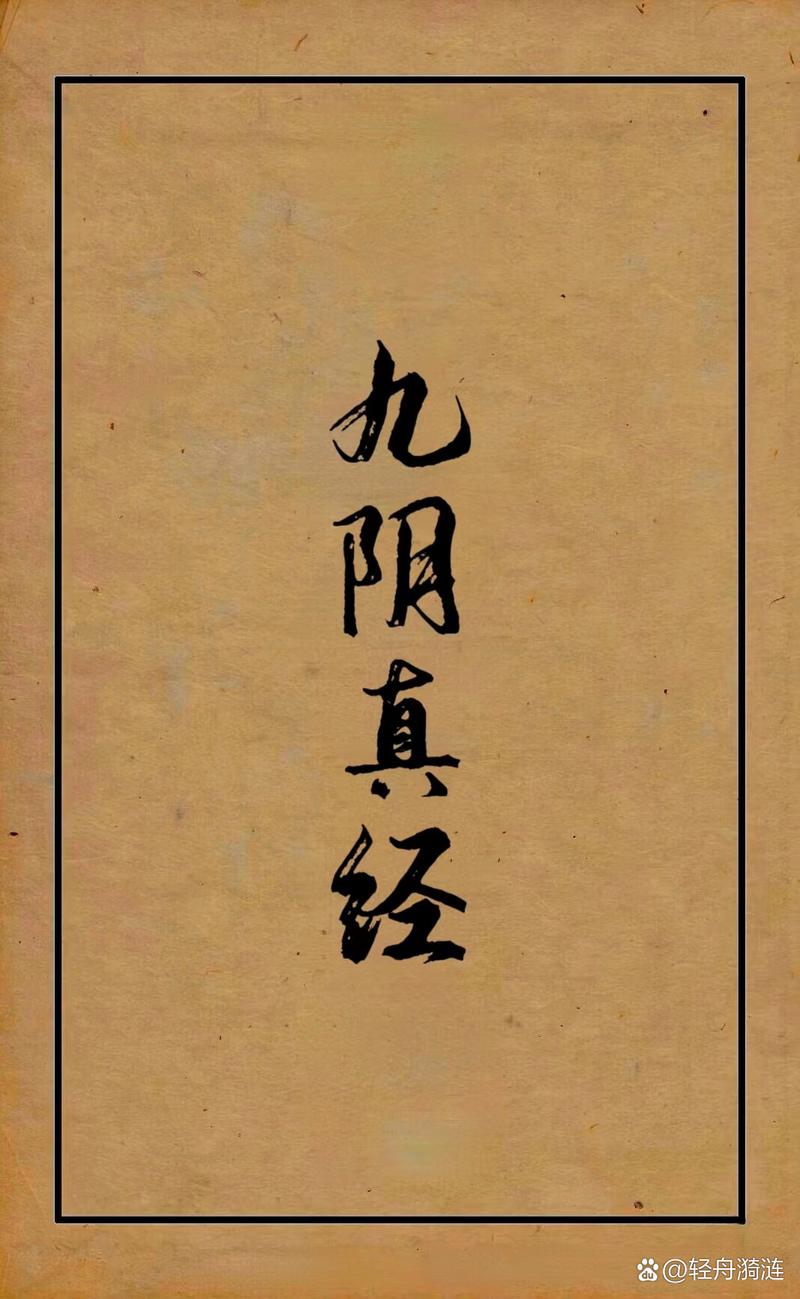 九阴真经
du @轻舟漪涟